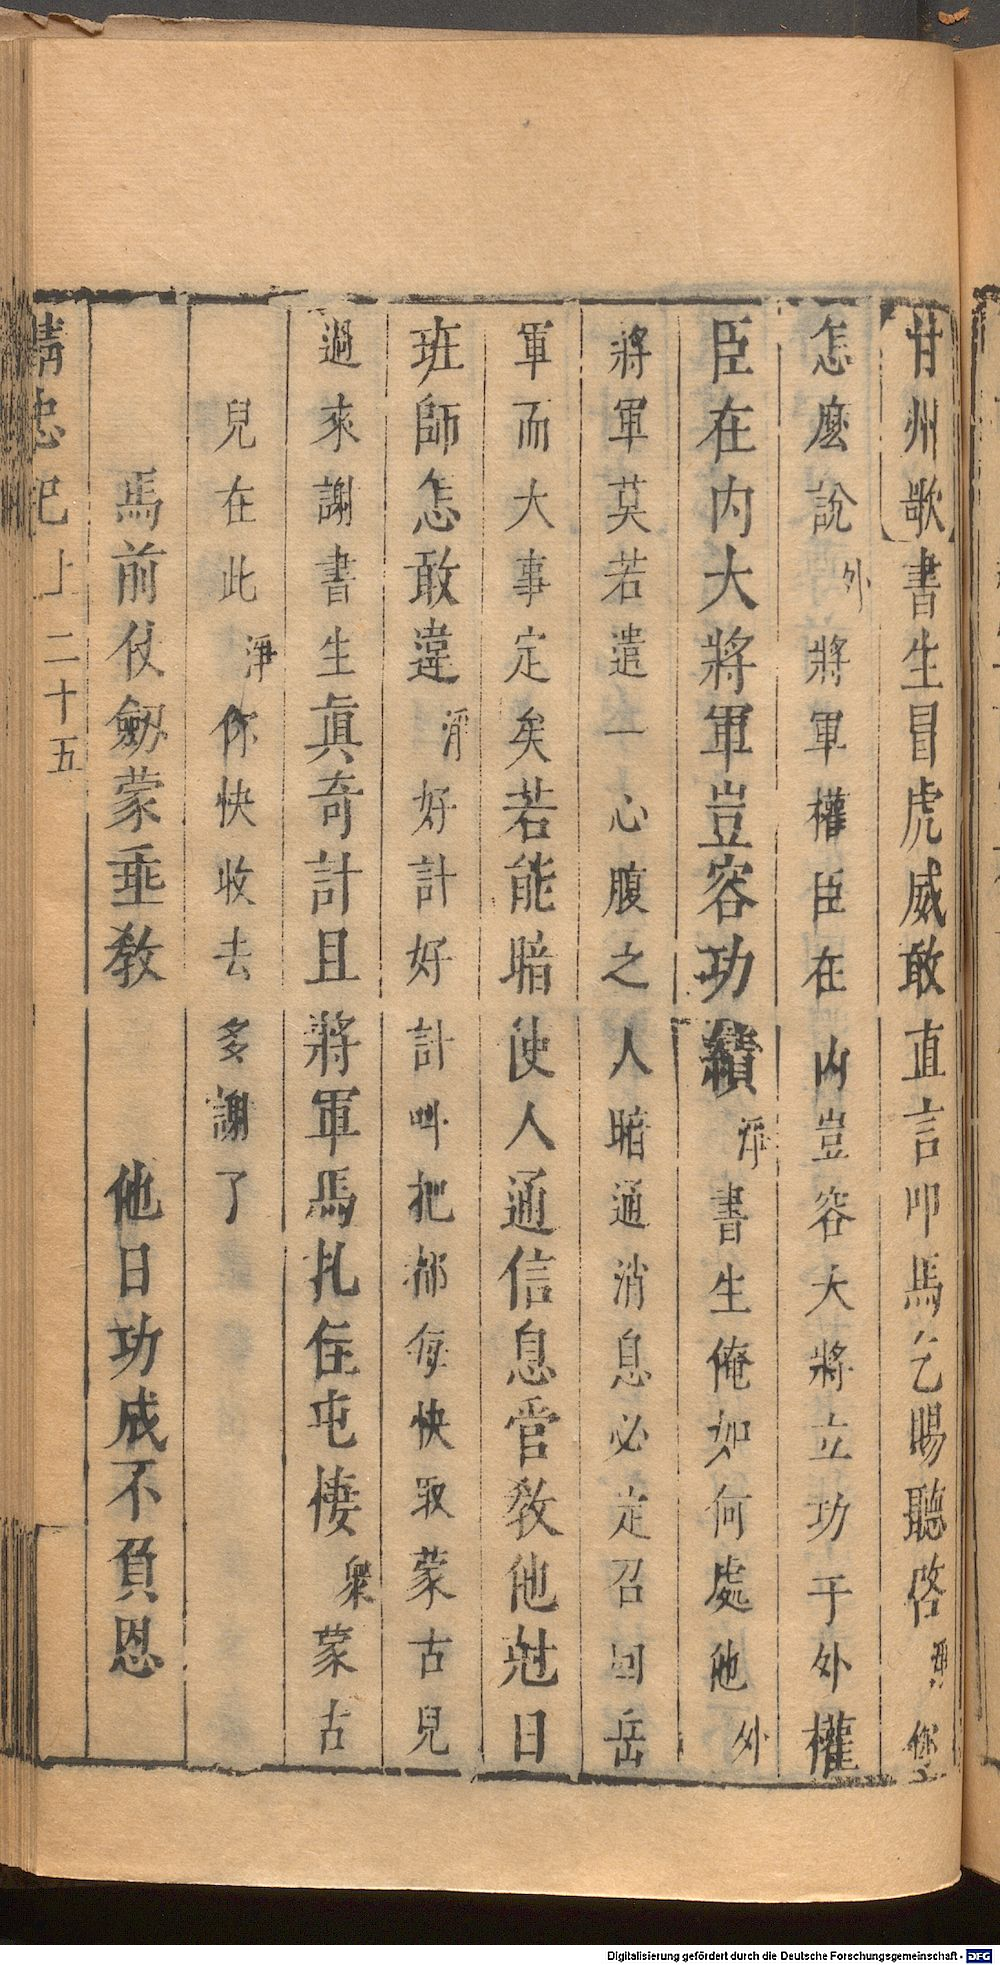 甘州歌書生冒虎威敢直言叩馬乞賜聽啓淨您
怎麽說外將軍權臣在內豈容大將立功于外權
臣在内大將軍豈容功績淨書生俺如何處他外
將軍莫若遣一心腹之人暗通消息必定召回岳
軍而大事定矣若能暗使人通信息管教他尅日
班師怎敢違淨好計好計叫把都每快取蒙古兒
過來謝書生眞奇計且將軍馬扎住屯棲衆蒙古
兒在此淨你快收去多謝了
馬前伏劔蒙垂教 他日功成不負恩
精忠記上二十五
Digitalisierung gefördert durch die Deutsche Forschungsgemeinschaft - DFG